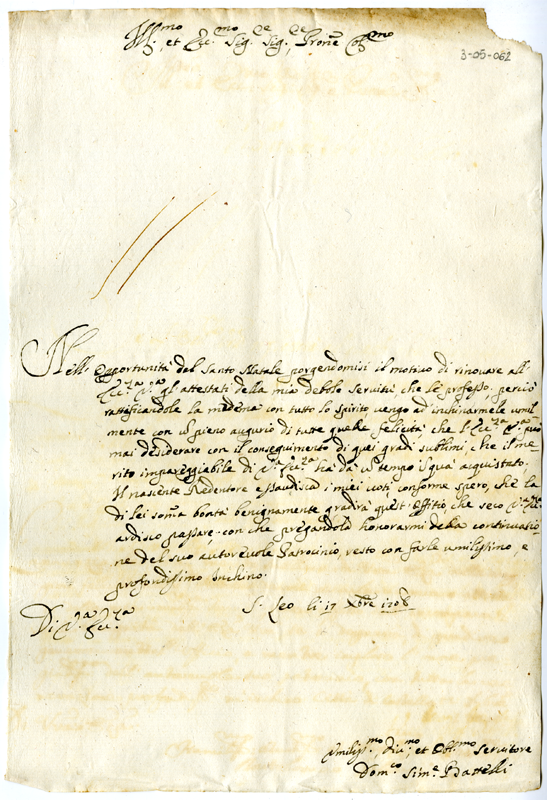 Ill.mo, et Ecc.mo Sig.re Sig.re Prone Col.mo
3-05-062
Nell' opportunità del Santo Natale porgendomisi il motivo di rinovare all'
Ecc.za V.ra gl'attestati della mia debole servitù, che le professo, perciò
rattificandole la medema con tutto lo spirito, vengo ad inchinarmele umil
mente con un pieno augurio di tutte quelle felicità che l'Ecc.za V.ra può
mai desiderare con il conseguimento di quei gradi sublimi, che il me
rito impareggiabile di V.ra Ecc.za ha da un tempo in qua acquistato.
Il nascente Redentore esaudisca i miei voti, conforme spero, che la
di lei somma bontà benignamente gradirà quest'offitio, che seco V.ra Ecc.za
ardisco passare. con che pregandola honorarmi della continuatio
ne del suo autorevole Patrocinio, resto con farle umilissimo, e
profondissimo Inchino.
S. Leo li 17 Xbre 1708
Di V.ra Ecc.za
Umiliss.mo Div.mo, et Obl.mo Servitore
Dom.co Sim.e Battelli